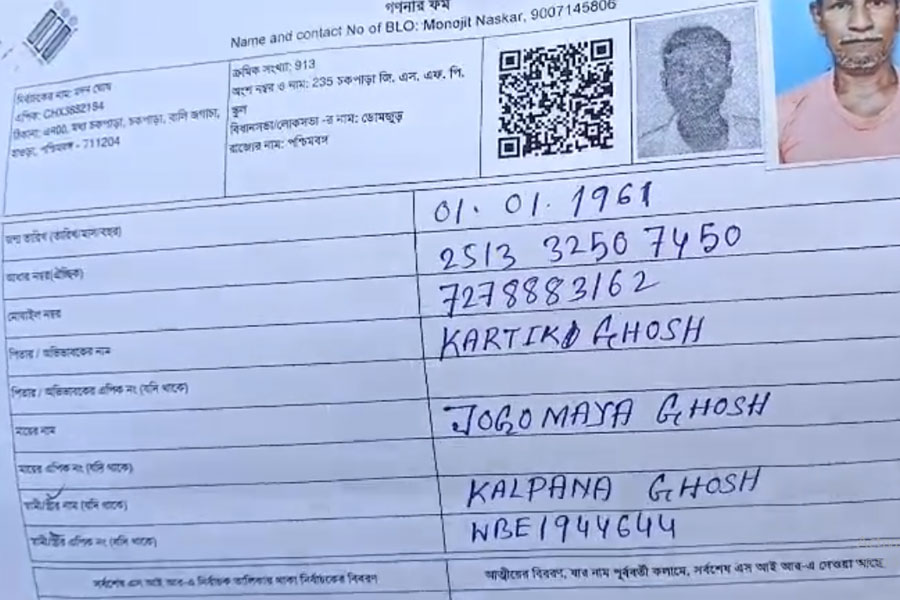 গণনার ফর্ম
Name and contact No of BLO: Monojit Naskar, 9007145806
নির্বাচকের নাম: মদন ঘোষ
এপিক: CHX3882184
ঠিকানা: এন00, মধ্য চকপাড়া, চকপাড়া, বালি জগাছা,
হাওড়া, পশ্চিমবঙ্গ - 711204
ক্রমিক সংখ্যা: 913
অংশ নম্বর ও নাম: 235 চকপাড়া জি, এস, এফ, পি,
স্কুল
বিধানসভা/লোকসভা -র নাম: ডোমজুড়
রাজ্যের নাম: পশ্চিমবঙ্গ
জন্ম তারিখ (তারিখ/মাস/বছর)
01. 01. 1961
আধার নম্বর(ঐচ্ছিক)
2513 3250 7450
মোবাইল নম্বর
7278883162
পিতার / অভিভাবকের নাম
KARTIK GHOSH
পিতার / অভিভাবকের এপিক নং (যদি থাকে)
মায়ের নাম
JOGOMAYA GHOSH
মায়ের এপিক নং (যদি থাকে)
স্বামী/স্ত্রীর নাম (যদি থাকে)
KALPANA GHOSH
স্বামী/স্ত্রীর এপিক নং (যদি থাকে)
WBE1944644
সর্বশেষ এস আই আর-এ নির্বাচক তালিকায় থাকা নির্বাচকের বিবরণ
আত্মীয়ের বিবরণ, যার নাম পূর্ববর্তী কলামে, সর্বশেষ এস আই আর-এ দেওয়া আছে